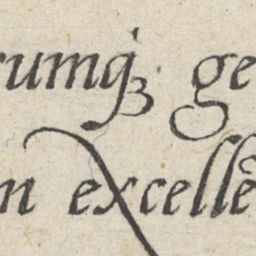 rumqꝫ. ge
n excellē